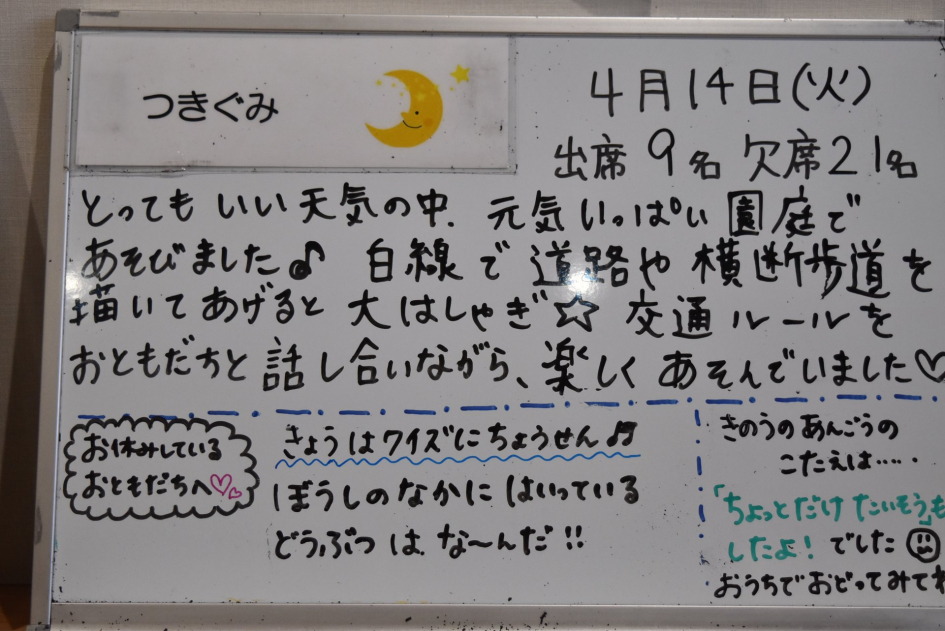 つきぐみ
4月14日(火)
出席9名 欠席21名
とっても いい天気の中. 元気いっぱい 園庭で
あそびました♪ 白線で 道路や 横断歩道を
描いて あげると 大はしゃぎ☆ 交通ルールを
おともだちと 話し合いながら、楽しく あそんでいました♡
お休みしている
おともだちへ♡♡
きょうはクイズにちょうせん♫
ぼうしのなかに はいっている
どうぶつは な〜んだ!!
きのうのあんごうの
こたえは・・・・・
「ちょっとだけ たいそう」も
したよ! でした
おうちでおどってみてね